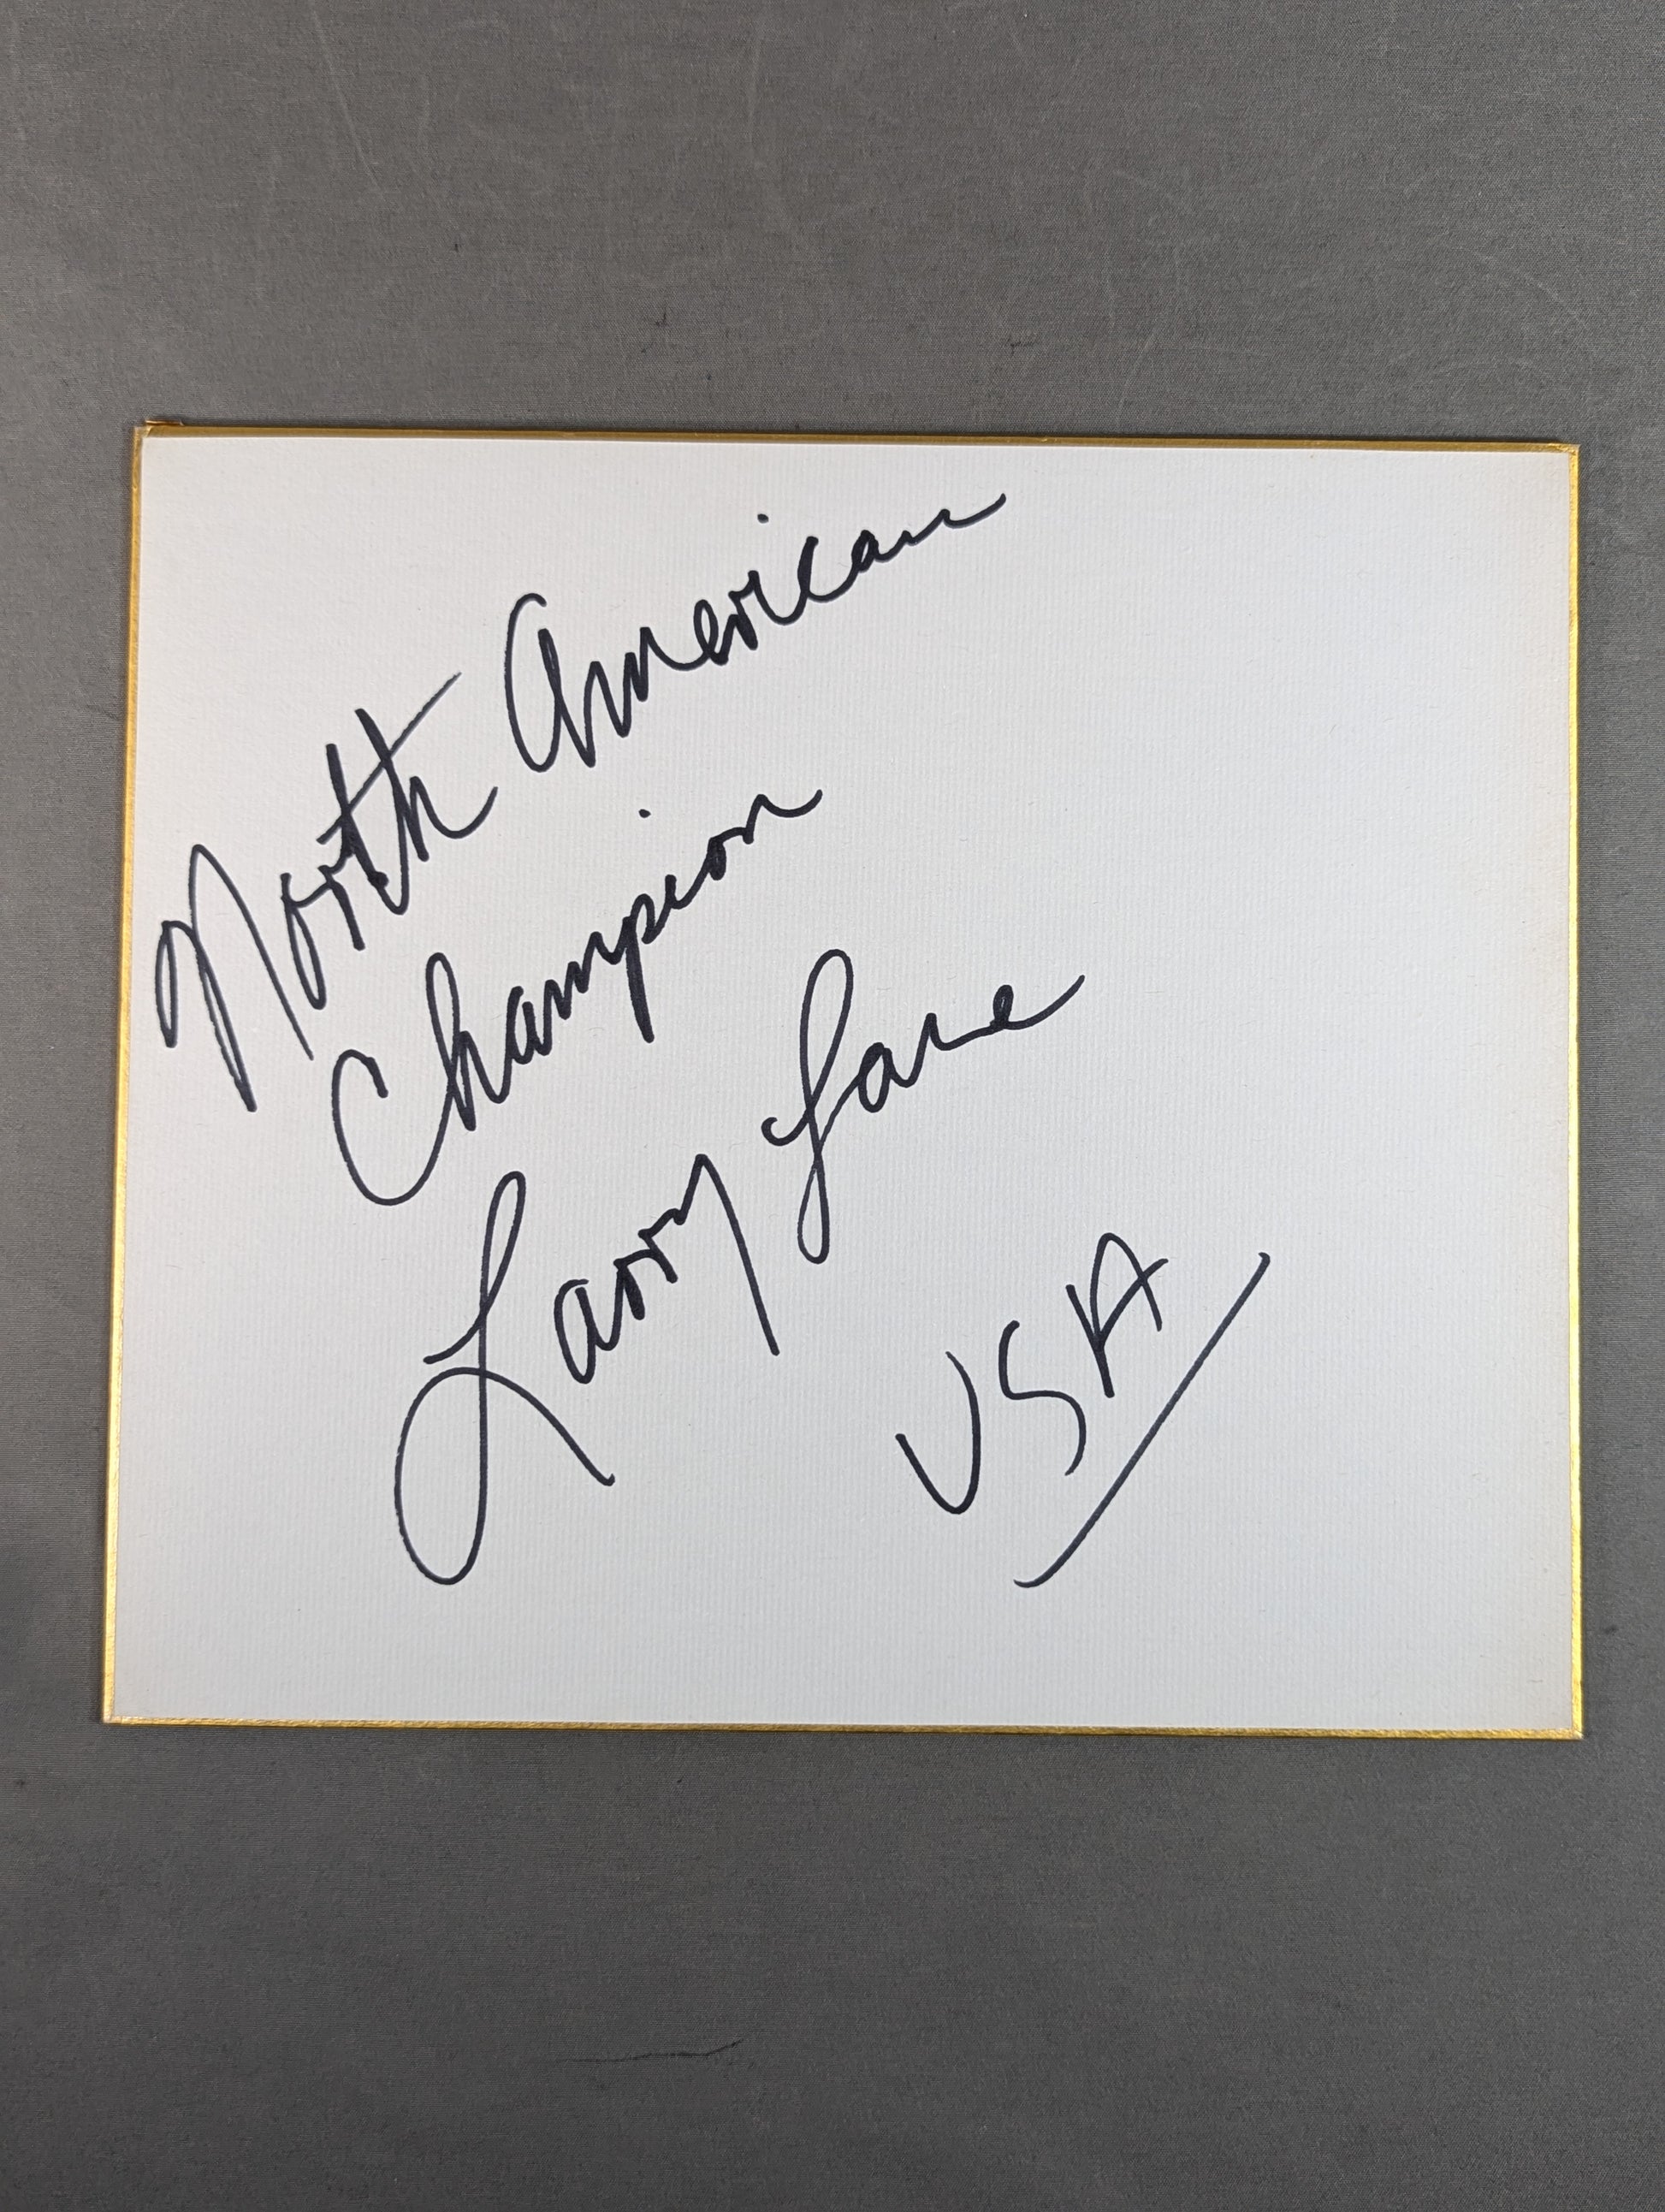 North American
Champion
Larry Lane
USA